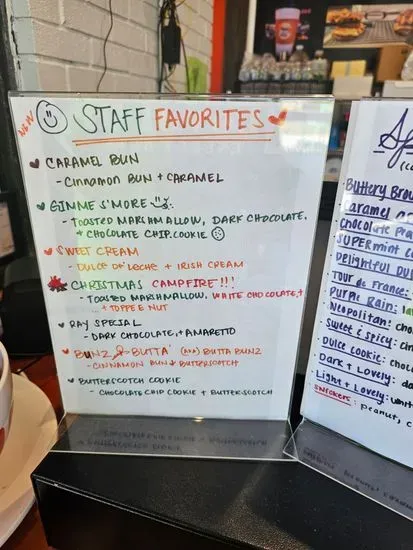 NEW
STAFF FAVORITES
CARAMEL BUN
- CINNAMON BUN + CARAMEL
GIMME S'MORE
- TOASTED MARSHMALLOW, DARK CHOCOLATE,
+ CHOCOLATE CHIP COOKIE
SWEET CREAM
- DULCE DE LECHE + IRISH CREAM
CHRISTMAS CAMPFIRE!!!
- TOASTED MARSHMALLOW, WHITE CHOCOLATE, +
... + TOFFEE NUT
RAY SPECIAL
- DARK CHOCOLATE, + AMARETTO
BUNZ & BUTTA' (AKA) BUTTA BUNZ
- CINNAMON BUN + BUTTERSCOTCH
BUTTERSCOTCH COOKIE
- CHOCOLATE CHIP COOKIE + BUTTERSCOTCH
Buttery Brow
Caramel
Chocolate
SUPERmint
Delightful
Tour de France:
Purple Rain:
Neopolitan: cho
Sweet & spicy: cin
Dulce cookie: choc
Dark + Lovely: da
Light + Lovely: whit
Snickers: peanut, c